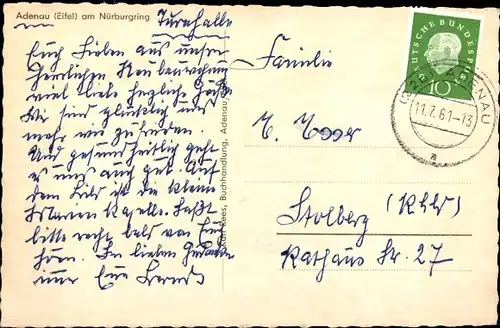 Adenau (Eifel) am Nürburgring
Turnhalle
Euch Lieben aus unserer
herrlichen Neubauwohnung
viel liebe herzliche Grüße
Wir sind glücklich und
mehr wie zufrieden.
Und gesundheitlich geht
es uns auch gut. Auf
dem Bild ist die kleine
Marien Kapelle. Laßt
bitte recht bald von Euch
hören. In lieben Gedanken
Eure
Familie
Esser
Stolberg (Rhld)
Rathaus Str. 27
Rees, Buchhandlung, Adenau
DEUTSCHE BUNDESPOST
10
ADENAU
11.7.61-13
a